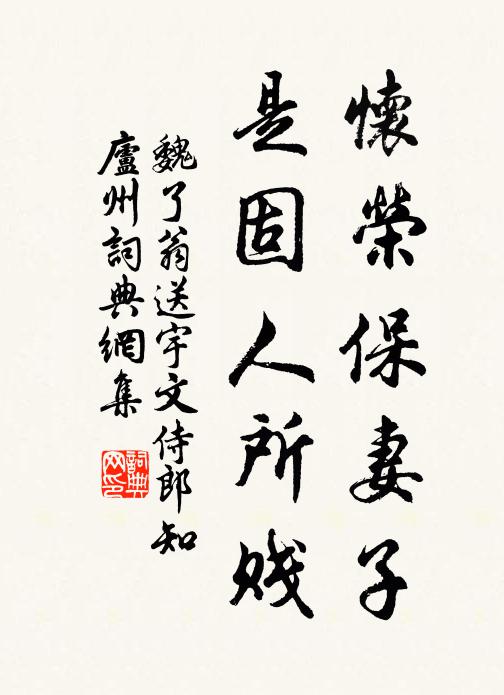 懷榮保妻子
是固人所賤
魏了翁送宇文侍郎知
廬州詞典網集
詞典網印